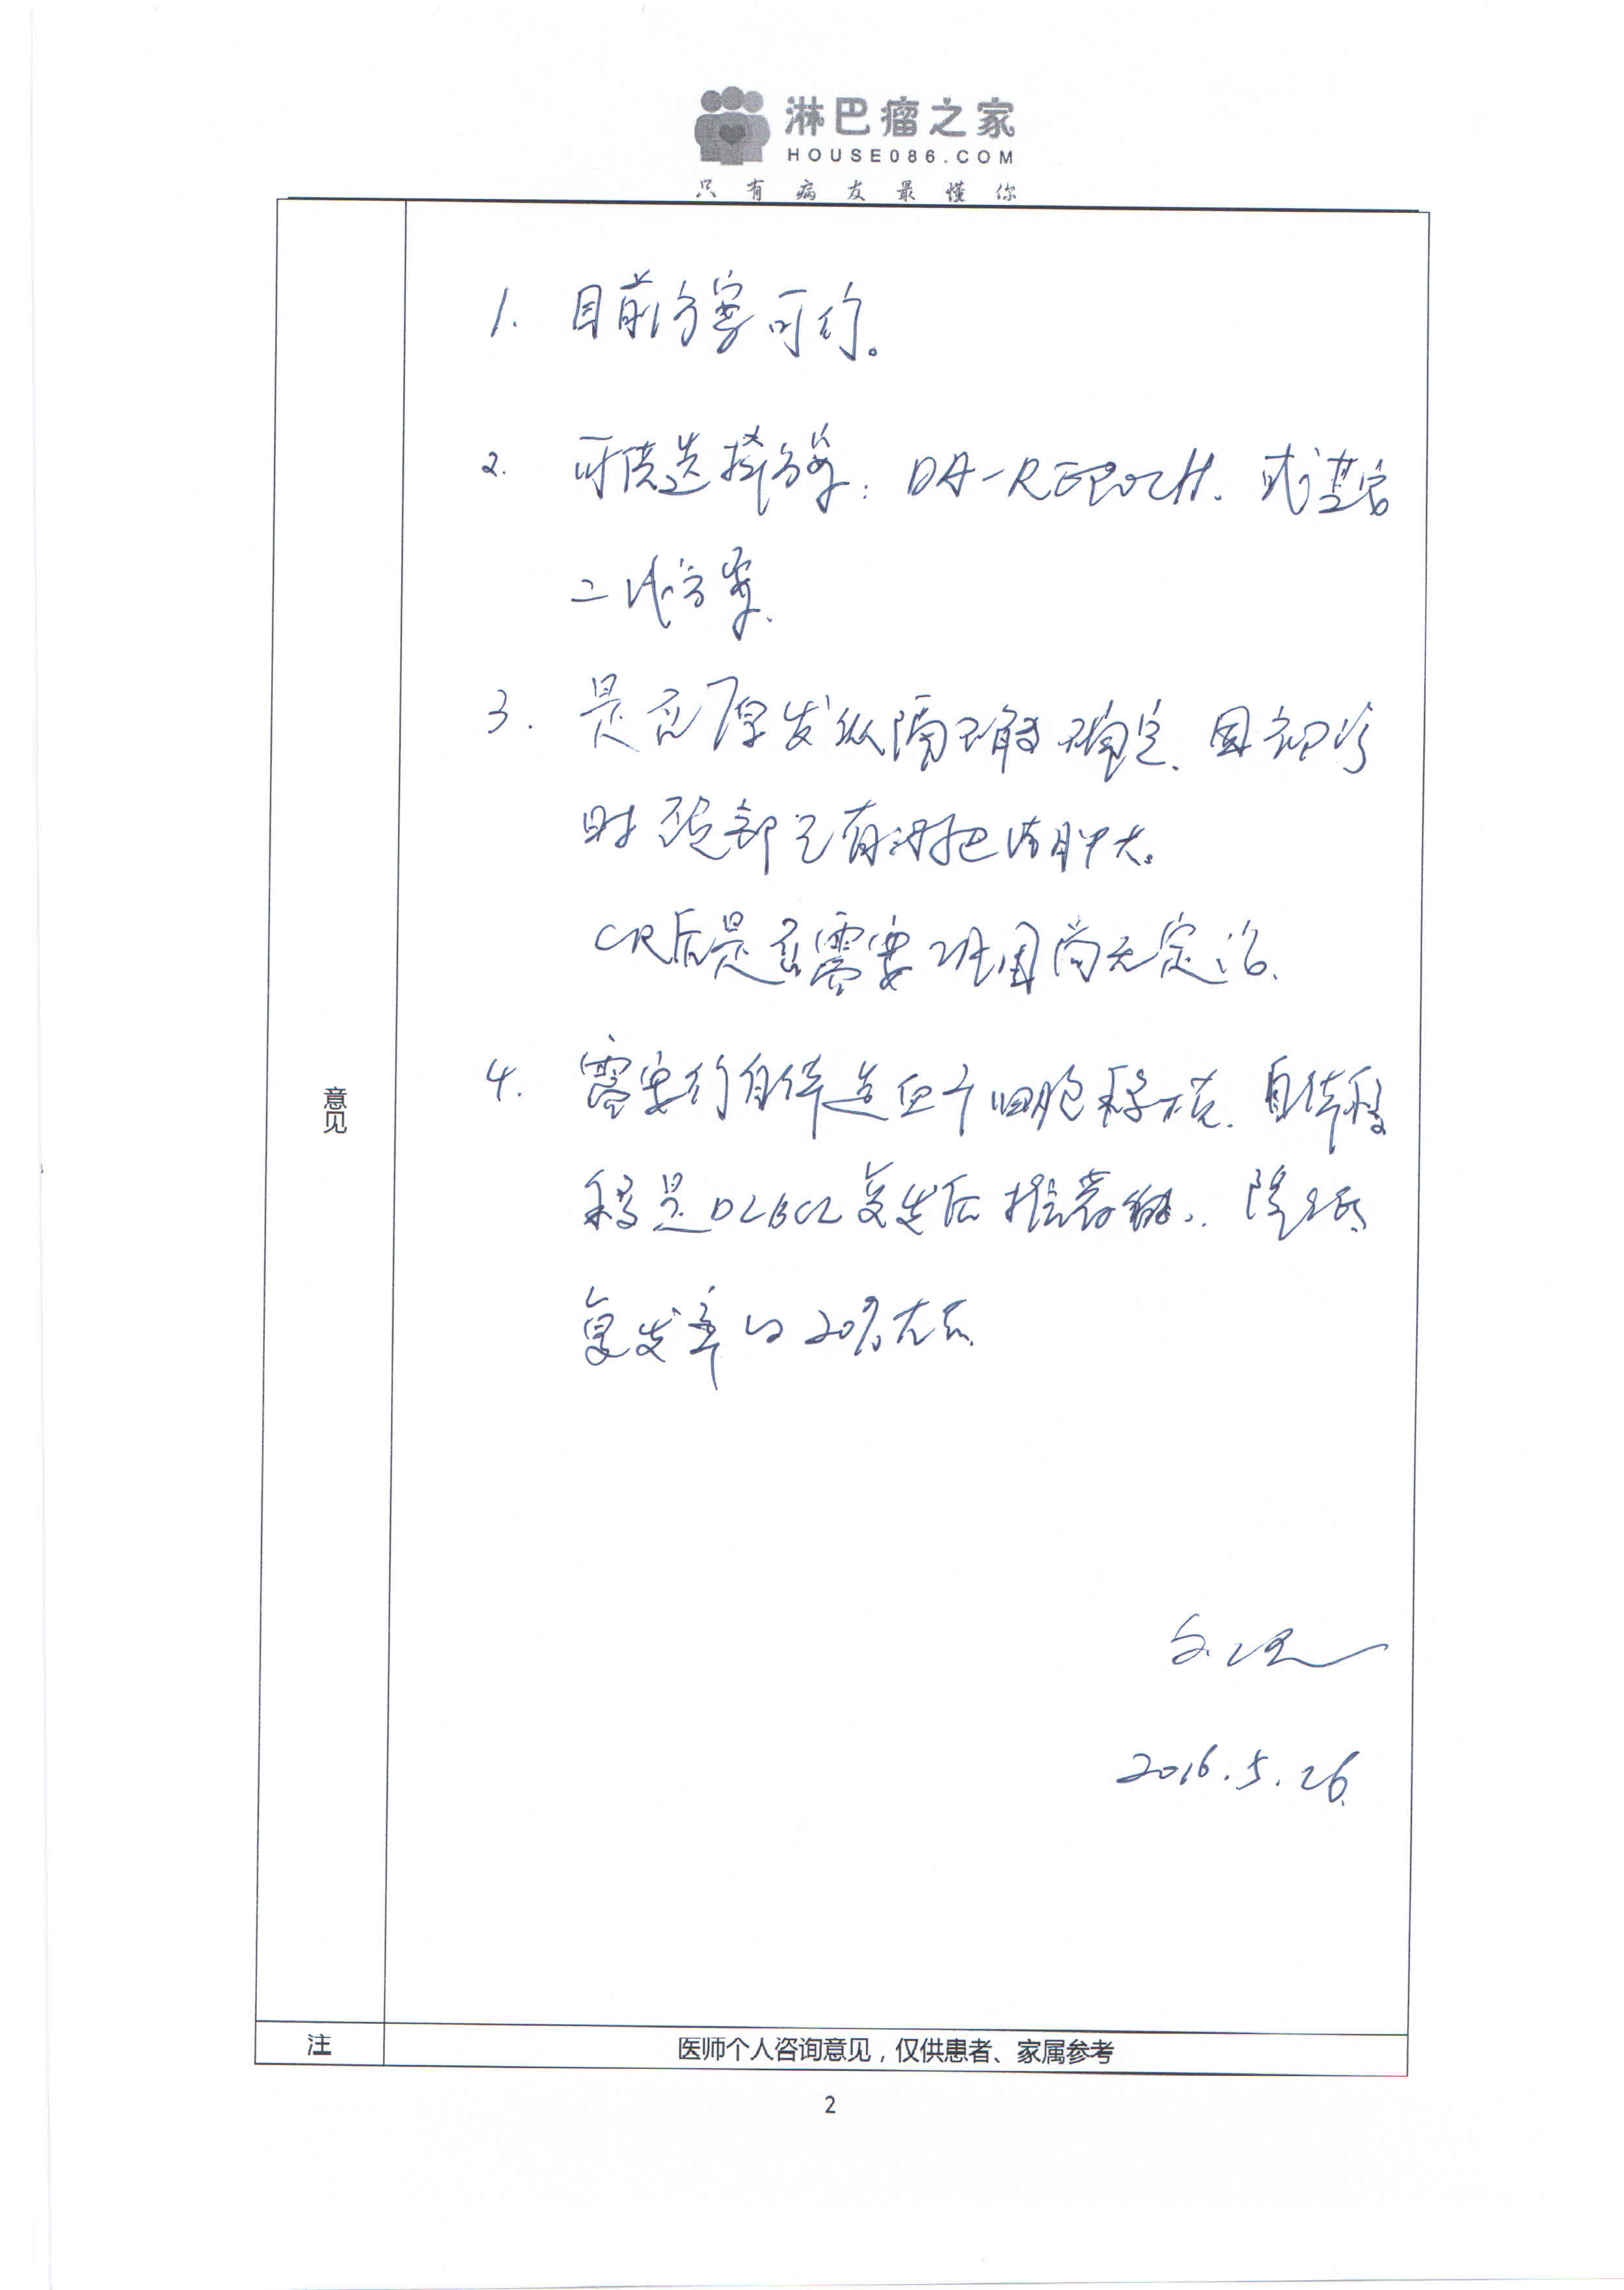 淋巴瘤之家
HOUSE086.COM
只有病友最懂你
1. 目前方案可行。
2. 可供选择方案：DA-REPOCH. 或其它
二代方案.
3. 是否原发纵隔不能确定. 因初诊
时颈部已有淋巴结肿大。
CR后是否需要巩固尚无定论.
4. 需要行自体造血干细胞移植. 自体移
移是DLBCL复发后推荐
复发率约20%左右.
2016.5.26.
意见
注
医师个人咨询意见，仅供患者、家属参考
2